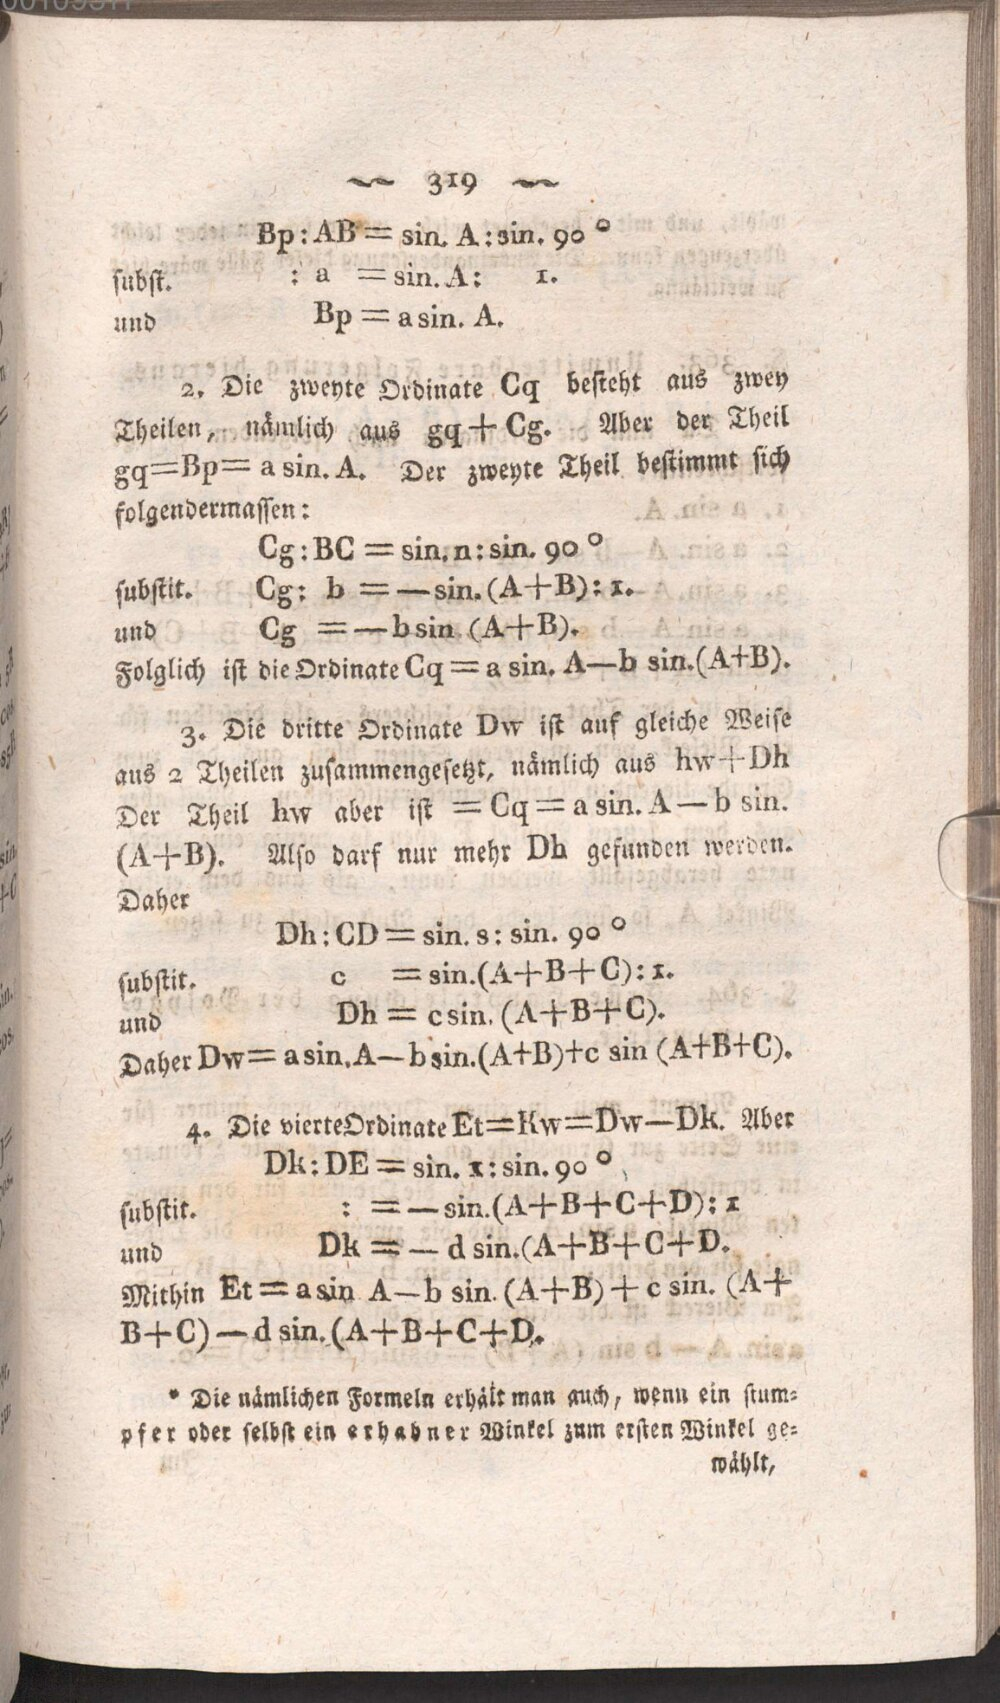 319
Bp : AB = sin. A : sin. 90°
subst. : a = sin. A : 1.
und Bp = a sin. A.
2. Die zweyte Ordinate Cq besteht aus zwey
Theilen, nämlich aus gq + Cg. Aber der Theil
gq = Bp = a sin. A. Der zweyte Theil bestimmt sich
folgendermassen:
Cg : BC = sin. n : sin. 90°
substit. Cg : b = — sin. (A+B) : 1.
und Cg = — b sin. (A+B).
Folglich ist die Ordinate Cq = a sin. A — b sin. (A+B).
3. Die dritte Ordinate Dw ist auf gleiche Weise
aus 2 Theilen zusammengesetzt, nämlich aus hw + Dh
Der Theil hw aber ist = Cq = a sin. A — b sin.
(A+B). Also darf nur mehr Dh gefunden werden.
Daher
Dh : CD = sin. s : sin. 90°
substit. c = sin. (A+B+C) : 1.
und Dh = c sin. (A+B+C).
Daher Dw = a sin. A — b sin. (A+B) + c sin (A+B+C).
4. Die vierte Ordinate Et = Kw = Dw — Dk. Aber
Dk : DE = sin. 1 : sin. 90°
substit. : = — sin. (A+B+C+D) : 1
und Dk = — d sin. (A+B+C+D.
Mithin Et = a sin A — b sin. (A+B) + c sin. (A+
B+C) — d sin. (A+B+C+D).
* Die nämlichen Formeln erhält man auch, wenn ein stum-
pfer oder selbst ein erhabner Winkel zum ersten Winkel ge-
wählt,